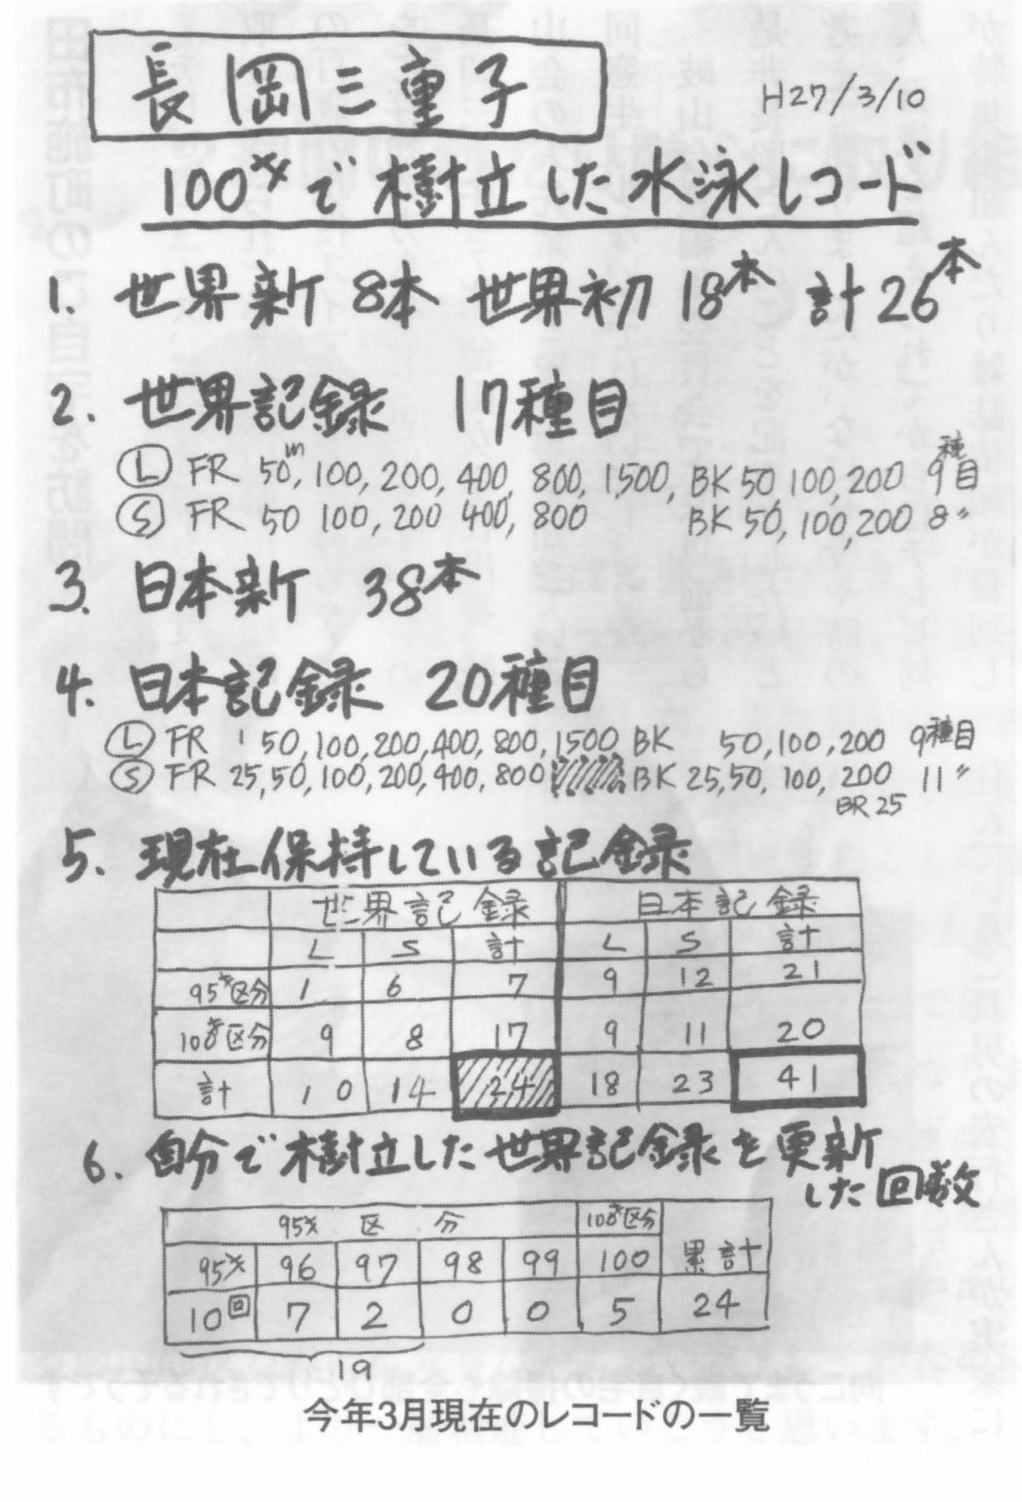 長岡三重子
H27/3/10
100才で樹立した水泳レコード
1. 世界新 8本 世界初 18本 計26本
2. 世界記録 17種目
Ⓛ FR 50m, 100, 200, 400, 800, 1500, BK 50, 100, 200 9種目
Ⓢ FR 50 100, 200 400, 800 BK 50, 100, 200 8〃
3. 日本新 38本
4. 日本記録 20種目
Ⓛ FR 50, 100, 200, 400, 800, 1500, BK 50, 100, 200 9種目
Ⓢ FR 25, 50, 100, 200, 400, 800 BK 25, 50, 100, 200 11〃
BR 25
5. 現在保持している記録
世界記録 日本記録
L S 計 L S 計
95才区分 1 6 7 9 12 21
100才区分 9 8 17 9 11 20
計 10 14 24 18 23 41
6. 自分で樹立した世界記録を更新
した回数
95才区分 100才区分 累計
95才 96 97 98 99 100
10回 7 2 0 0 5 24
19
今年3月現在のレコードの一覧